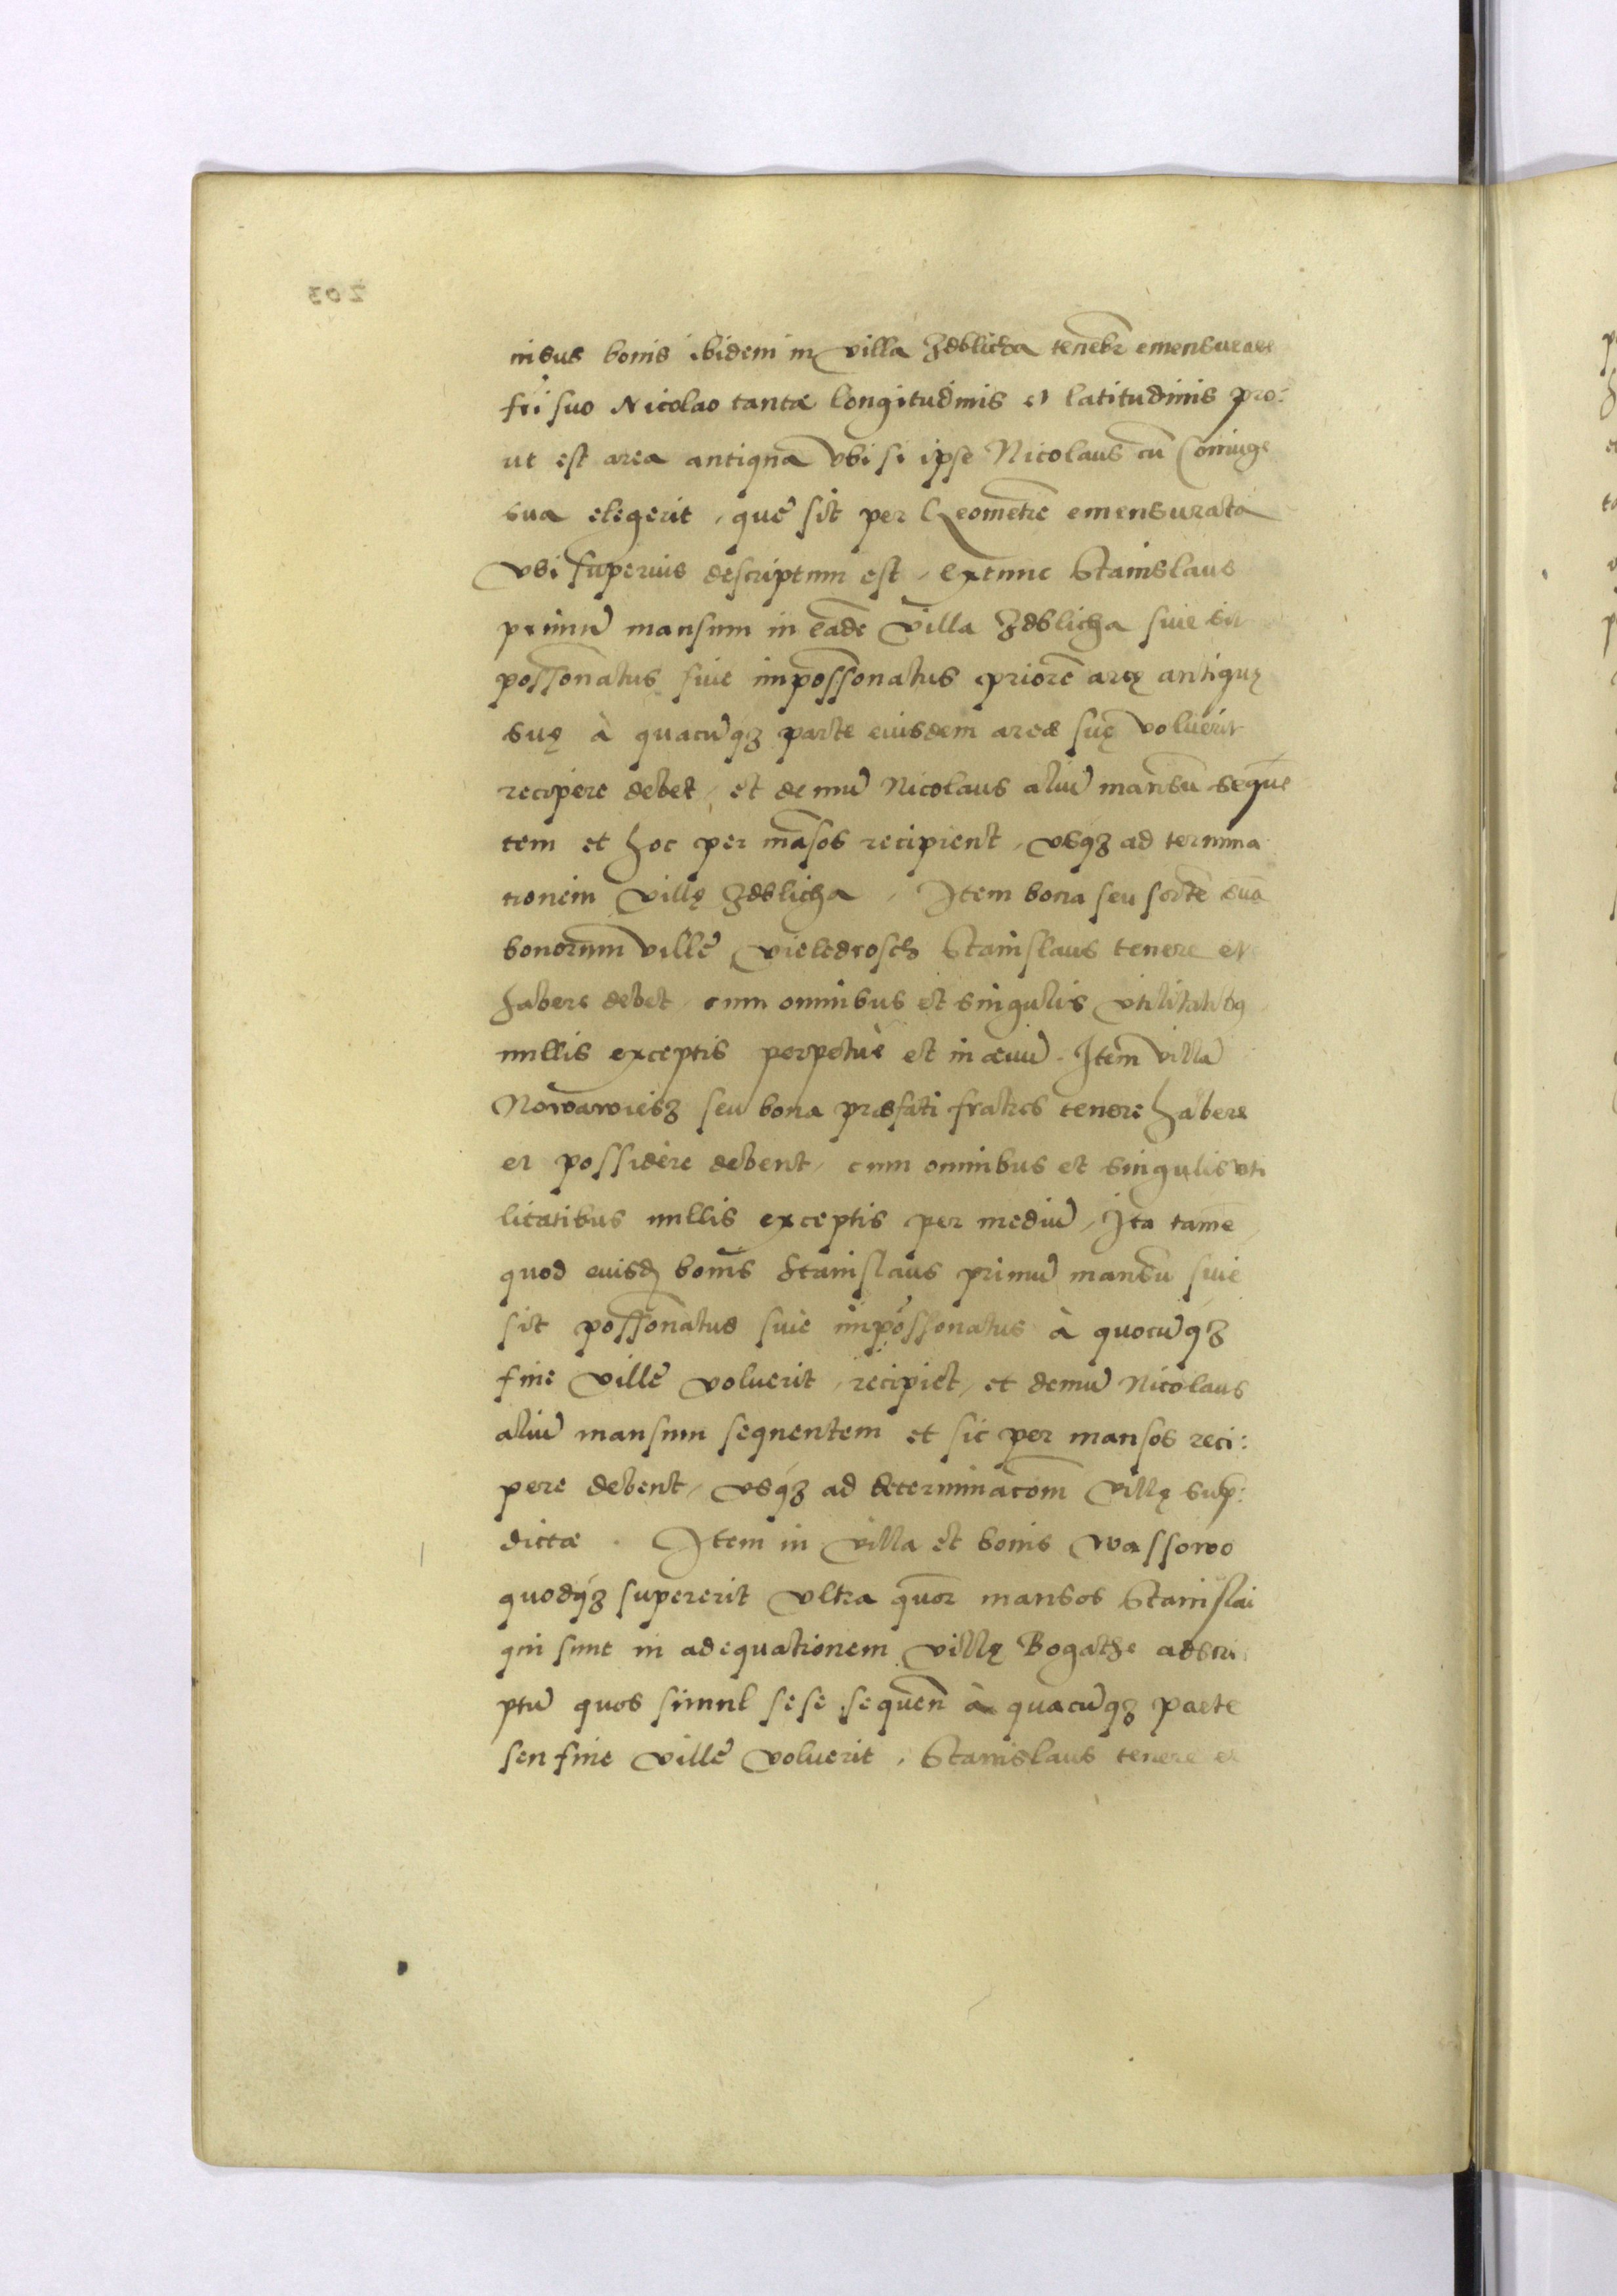 in suis bonis ibidem in villa Zdblicha tenebr̃ emensurare
fr̃i suo Nicolao tantæ longitudinis et latitudinis pro:
ut est area antiqua vbi si ipse Nicolaus cū Coniuge
sua elegerit, quę sit per Geometrē emensurata
vbi superius descriptum est, extunc Stanislaus
primū mansum in eadē villa Zdblicha siue sit
possōnatus siue impossōnatus priorē aręę antiquę
suę à quacūq3 parte eiusdem areæ suę voluerit
recipere debet, et demū Nicolaus aliū mansū sequē
tem et hoc per māsos recipient, vsq3 ad termina
tionem villę Zdblicha, Item bona seu sortē suā
bonorum villę Vieledrosch Stanislaus tenere et
habere debet, cum omnibus et singulis vtilitatibq
nullis exceptis perpetuè et in æuū. Item villā
Nowawiesz seu bona præfati fratres tenere habere
et possidere debent, cum omnibus et singulis vti
litatibus nullis exceptis per mediū, Ita tamē
quod eiusdē bonis Stanislaus primū mansū siue
sit possōnatus siue impossonatus à quocūq3
fine villę voluerit, recipiet, et demū Nicolaus
aliū mansum sequentem et sic per mansos reci:
pere debent, vsq3 ad determinacōm villę sup:
dictæ. Item in villa et bonis Wassowo
quodq3 supererit vltra quor mansos Stanislai
qui sunt in adequationem villę Bogathe adscri
ptū quos simul sese sequen̄ à quacūq3 parte
seu fine villę voluerit, Stanislaus tenere et